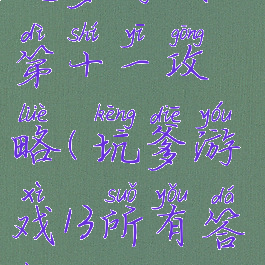 dì shí yī gōng
第十一攻
lüè kēng diē yóu
略(坑爹游
xì suǒ yǒu dá
戏13所有答